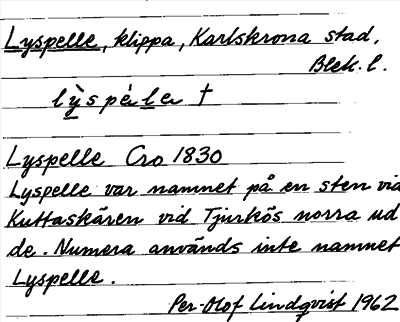 Lyspelle, klippa, Karlskrona stad,
Blek. l.
lỳspèle †
Lyspelle Cro 1830
Lyspelle var namnet på en sten vid
Kuttaskären vid Tjurkös norra ud
de. Numera används inte namnet
Lyspelle.
Per-Olof Lindqvist 1962